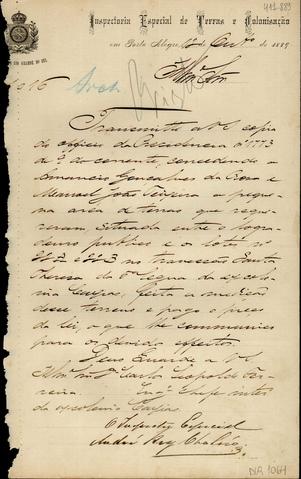 411-889
Inspectoria Especial de Terras e Colonisação
em Porto Alegre, de Outº de 1889
Illmo Snr.
1016
Arch
Transmitto a VS copia
do officio da Presidencia nº 1773
de do corrente, concedendo a
Gonçalves da Rosa e
Manoel João Teixeira a peque-
na area de terras que reque-
reram, situada entre o logra-
douro publico e os lotes nº
e no travessão Santa
Thereza da 5ª legua da ex colo-
nia Caxias, feita a medição
desse terreno e pago o preço
da lei, o que lhe communico
para os devidos effeitos.
Deus Guarde a VS
Illmo Snr. Carlos Leopoldo
Engº Chefe interº
da ex colonia Caxias
O Inspector Especial
NR 1064